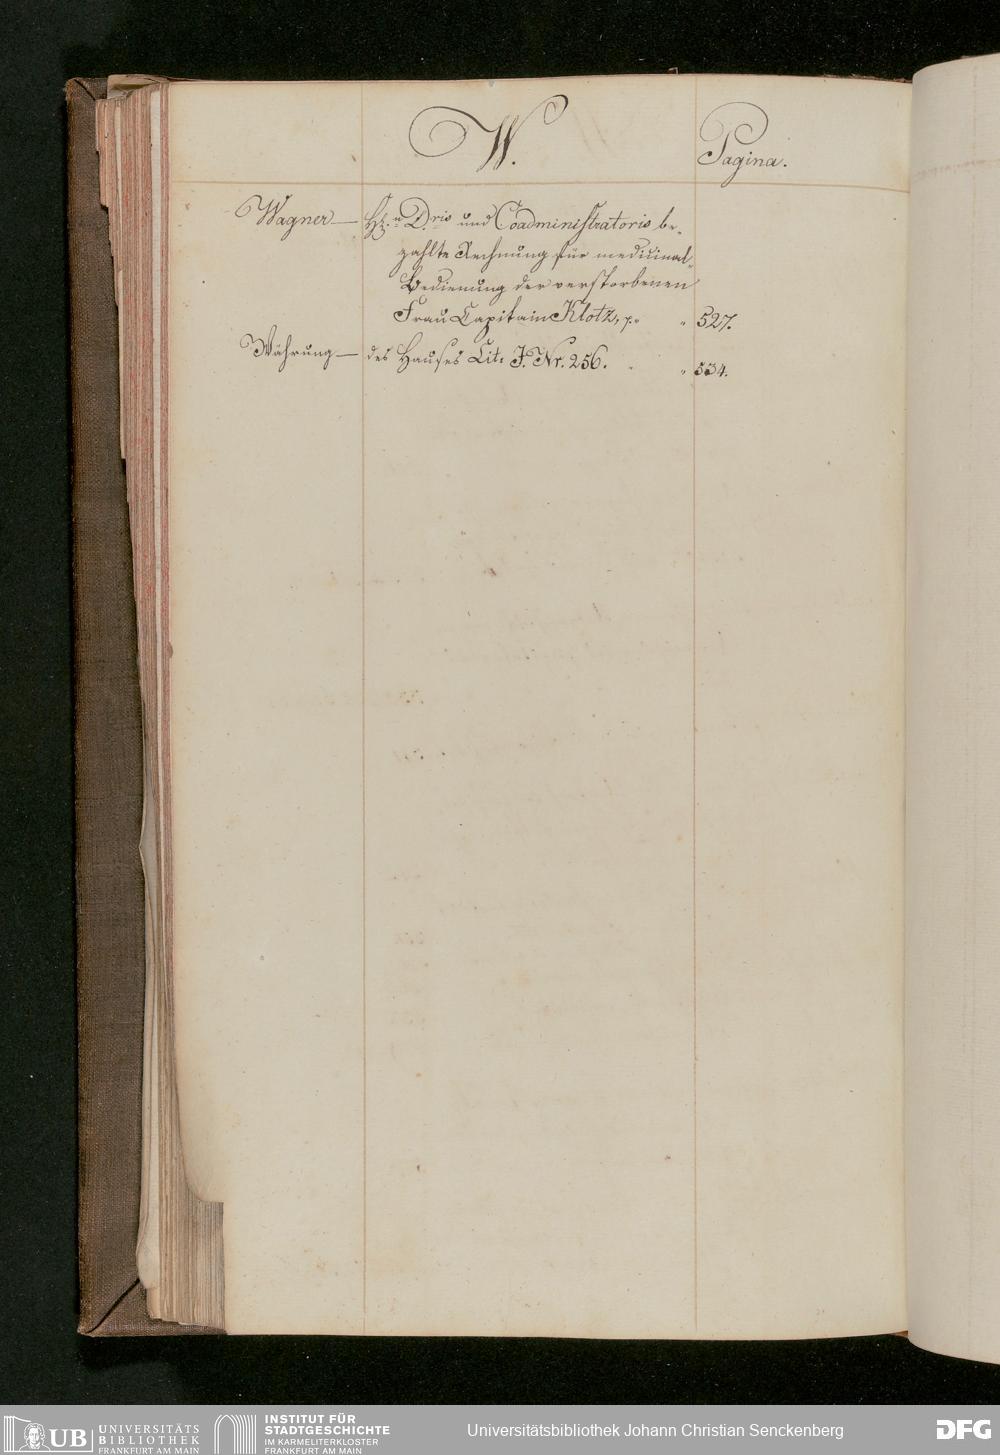 W.
Pagina.
Wagner — Hr.n Dris und Coadministratoris be-
zahlte Rechnung für medicinal-
Bedienung der verstorbenen
Frau Capitain Klotz, p. " 527.
Währung — des Hauses Lit: J. Nr. 256. . " 534.
UB UNIVERSITÄTS
BIBLIOTHEK
FRANKFURT AM MAIN
INSTITUT FÜR
STADTGESCHICHTE
IM KARMELITERKLOSTER
FRANKFURT AM MAIN
Universitätsbibliothek Johann Christian Senckenberg
DFG